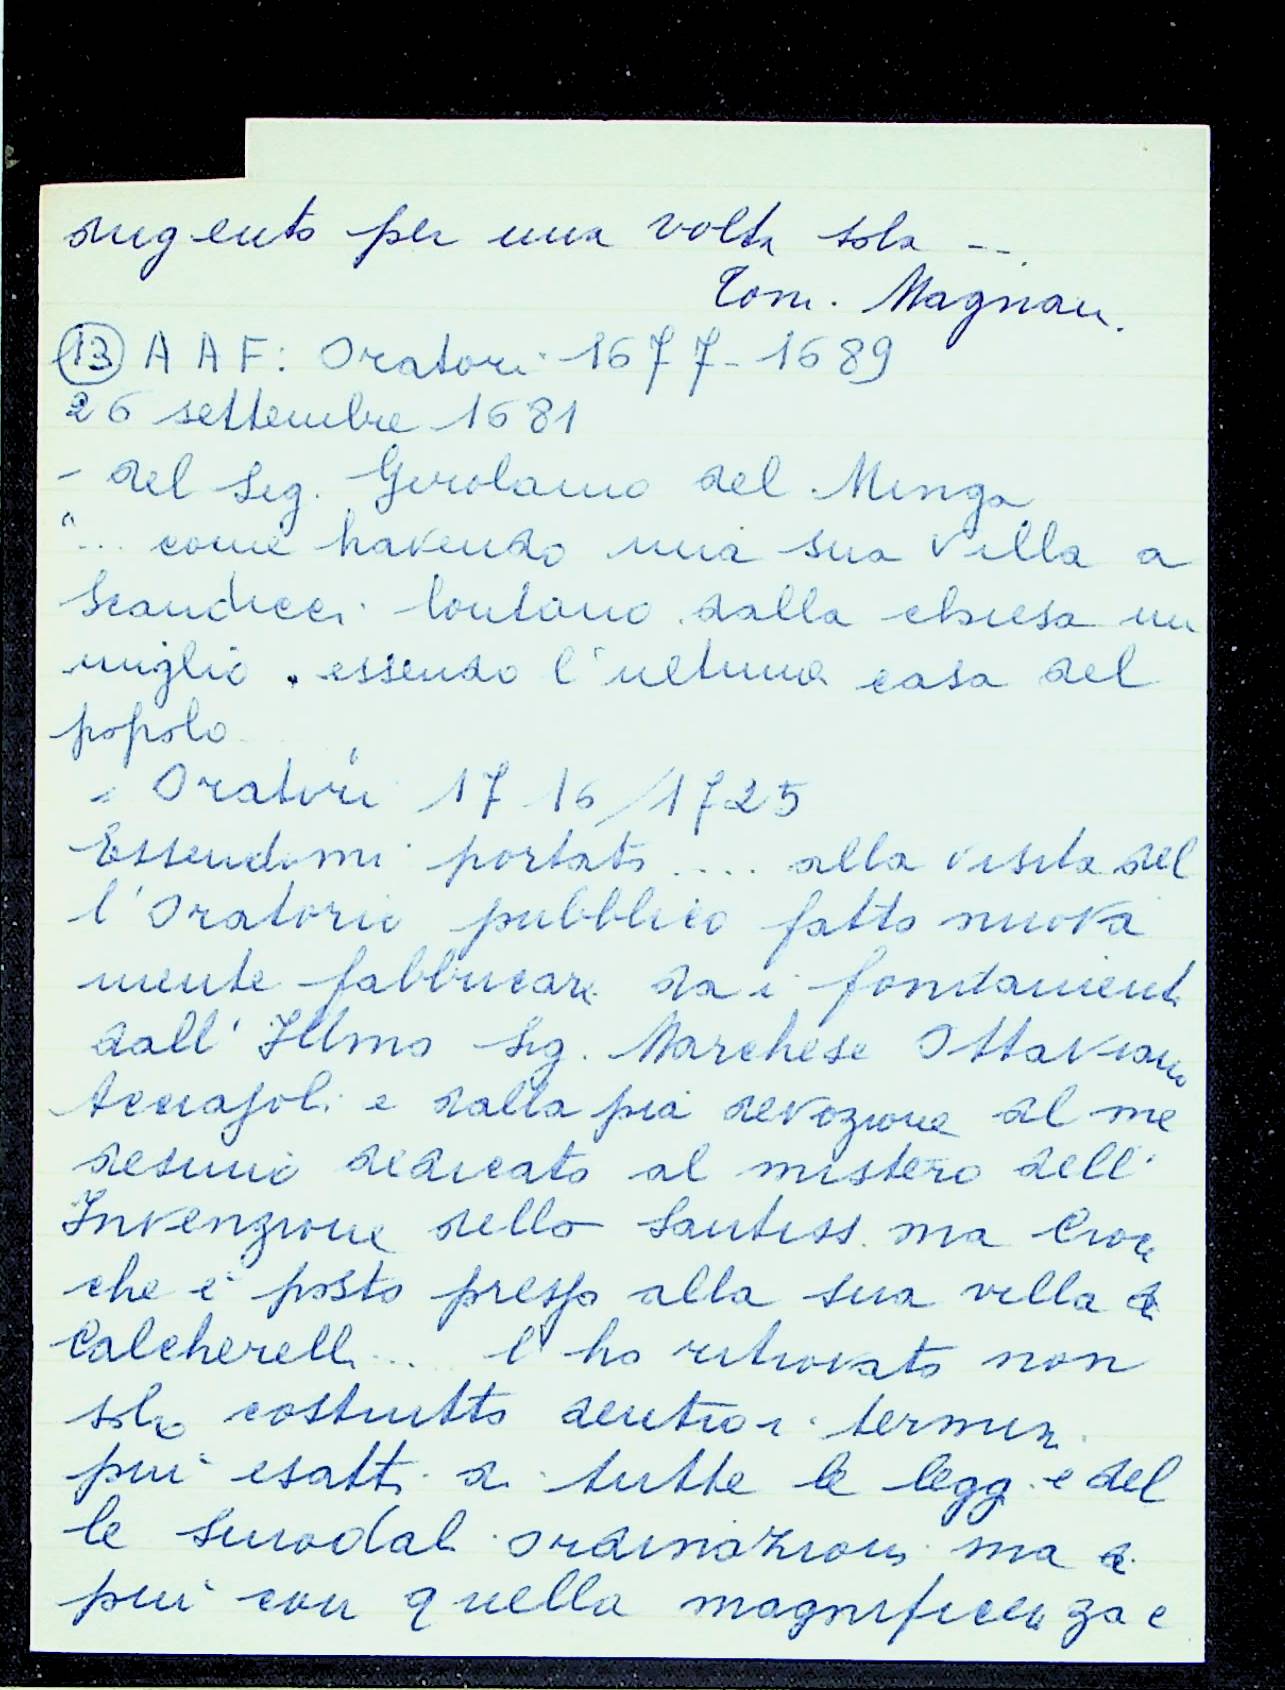 argento per una volta sola --.
Tom. Magnan.
13 A A F: Oratori 1677-1689
26 settembre 1681
- del Sig. Girolamo del Minga
"... come havendo una sua villa a
Scandicci lontano dalla chiesa un
miglio . essendo l'ultima casa del
popolo
" Oratori 1716/1725
Essendomi portato .... alla visita del
l'Oratorio pubblico fatto nuova
mente fabbricare da i fondamenti
dall' Illmo Sig. Marchese Ottaviano
Acciajoli e dalla pia devozione del me
desimo dedicato al mistero dell'
Invenzione della Santiss.ma Croce
che è posto presso alla sua villa di
Calcherelli .... l'ho ritrovato non
solo costrutto dentro i termini
più esatti di tutte le leggi e del
le Sinodali ordinazioni ma di
più con quella magnificenza e